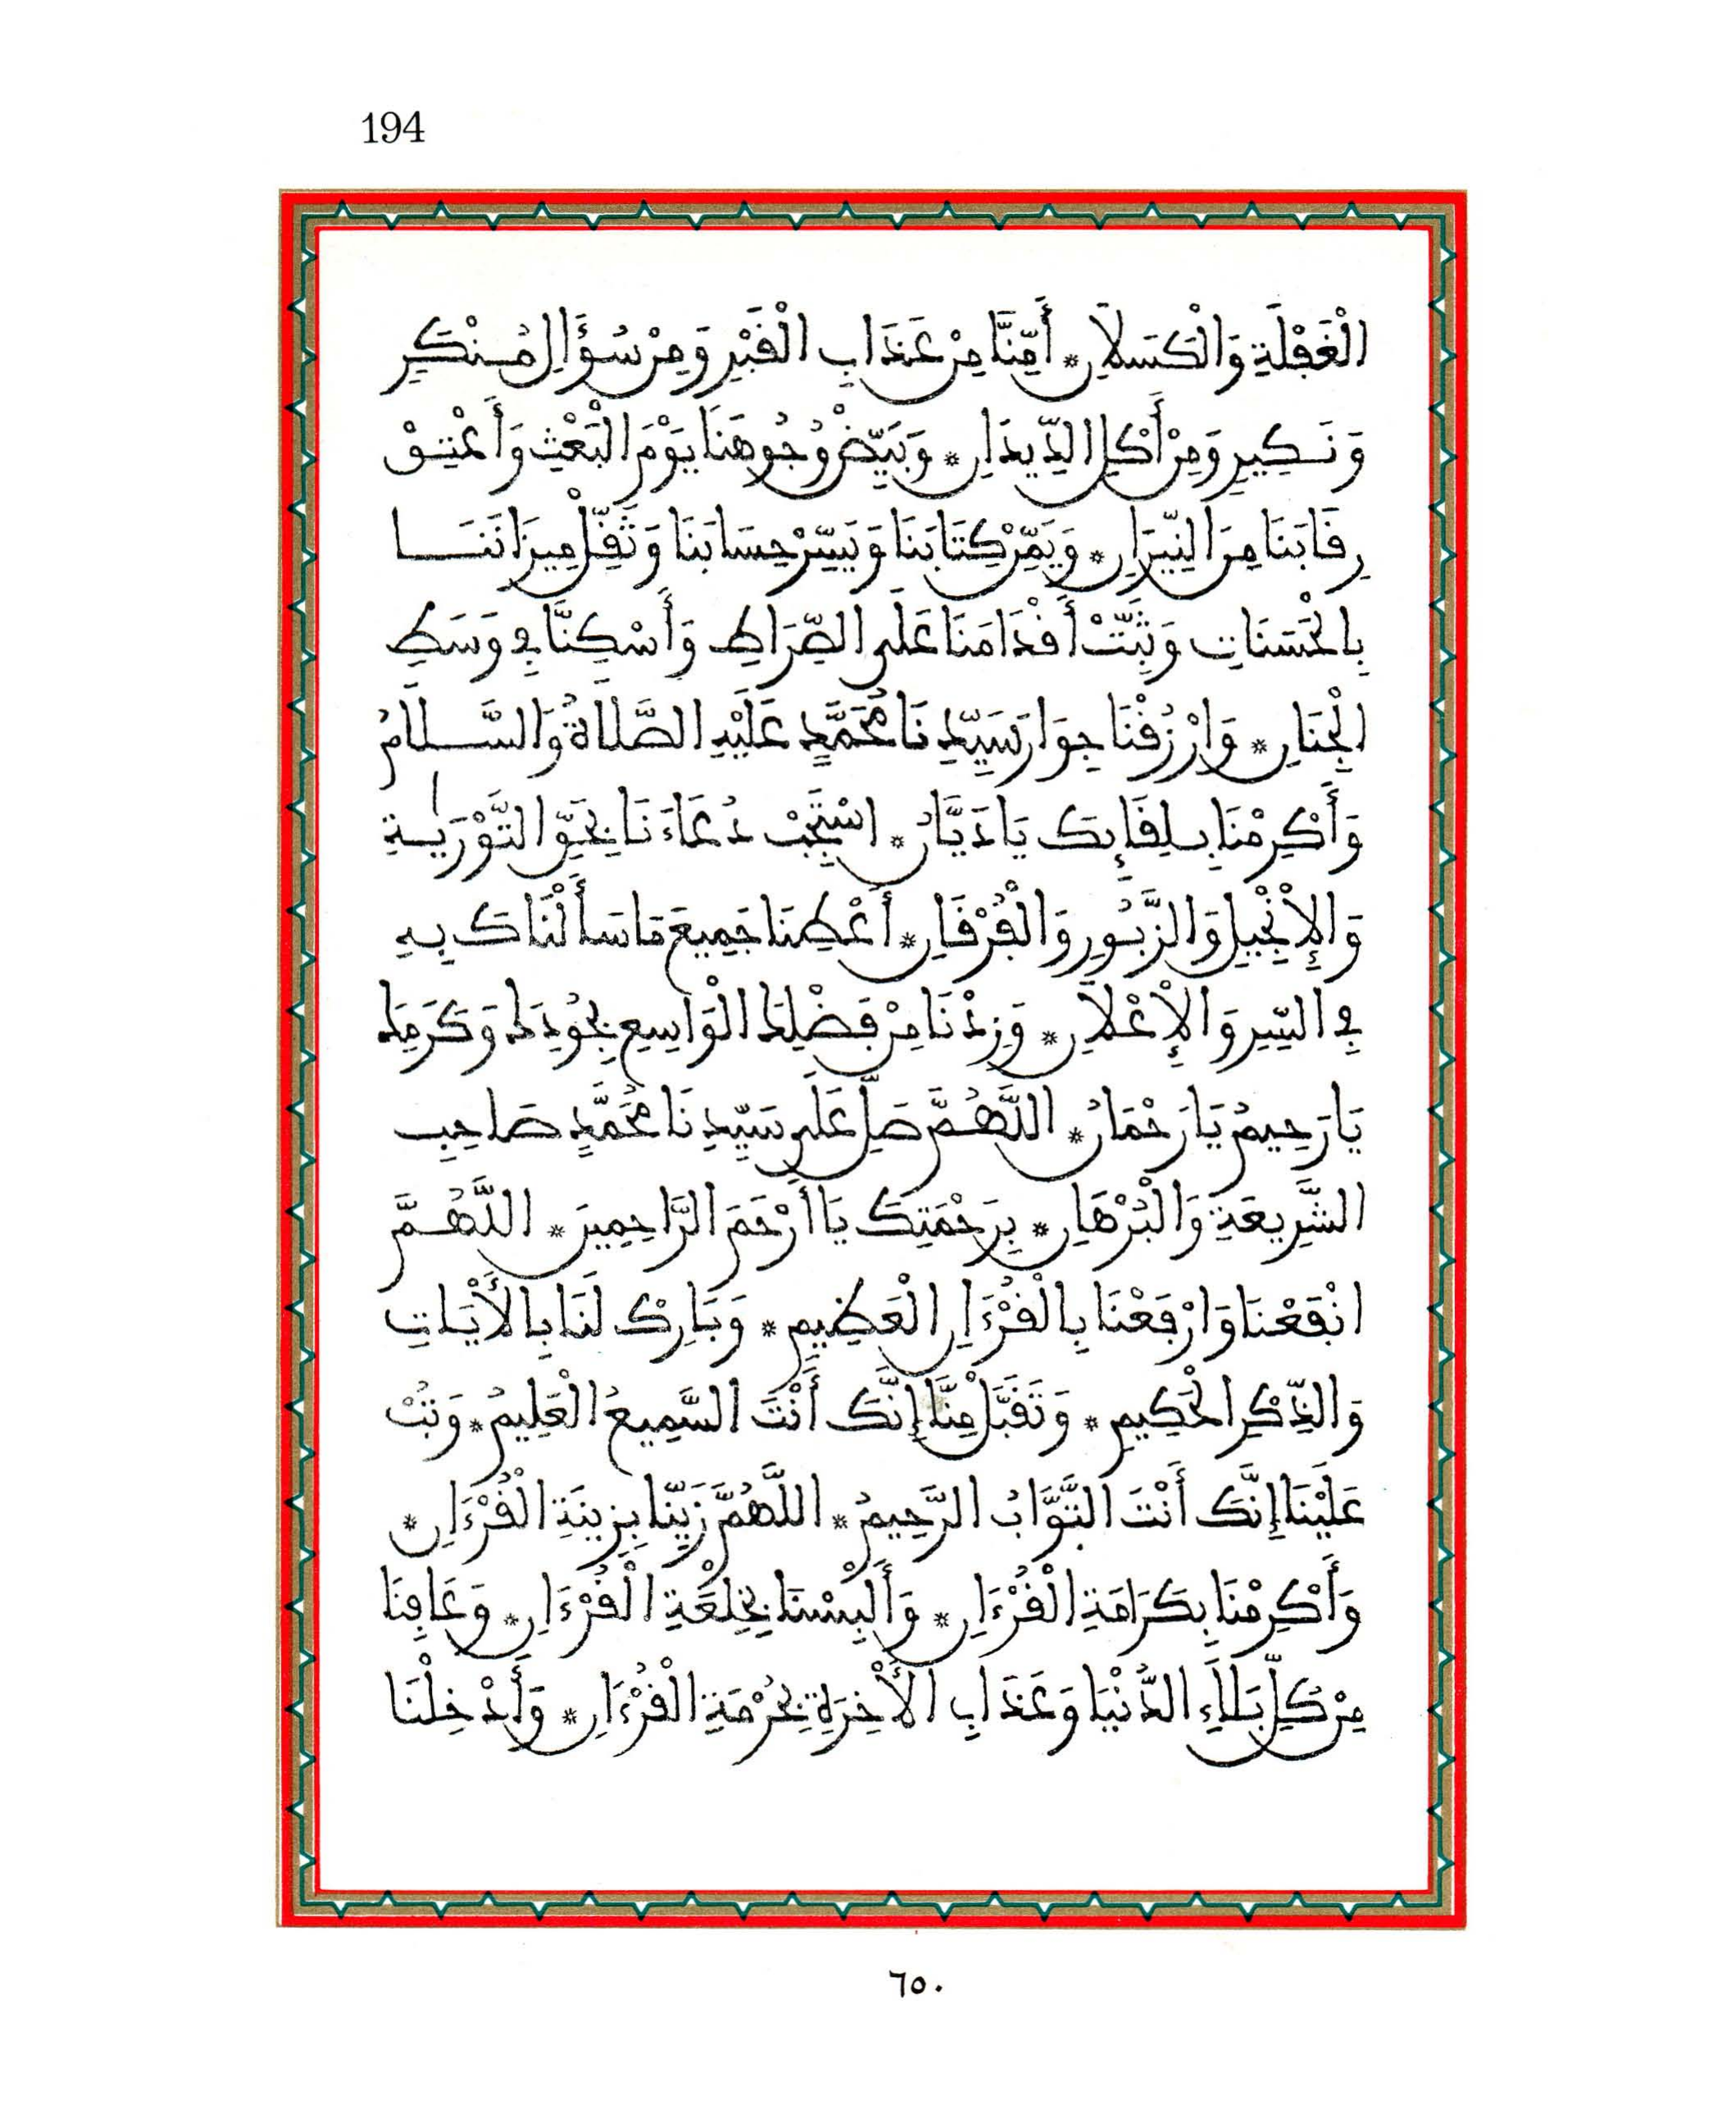 194
الْغَفْلَةِ وَالْكَسَلَانِ * أَمِّنَّا مِنْ عَذَابِ الْقَبْرِ وَمِنْ سُؤَالِ مُنْكَرٍ
وَنَكِيرٍ وَمِنْ أَكْلِ الدِّيدَانِ * وَبَيِّضْ وُجُوهَنَا يَوْمَ الْبَعْثِ وَأَعْتِقْ
رِقَابَنَا مِنَ النِّيرَانِ * وَيَمِّنْ كِتَابَنَا وَيَسِّرْ حِسَابَنَا وَثَقِّلْ مِيزَانَنَا
بِالْحَسَنَاتِ وَثَبِّتْ أَقْدَامَنَا عَلَى الصِّرَاطِ وَأَسْكِنَّا فِي وَسَطِ
الْجِنَانِ * وَارْزُقْنَا جِوَارَ سَيِّدِنَا مُحَمَّدٍ عَلَيْهِ الصَّلَاةُ وَالسَّلَامُ
وَأَكْرِمْنَا بِلِقَائِكَ يَا دَيَّانُ * اسْتَجِبْ دُعَاءَنَا بِحَقِّ التَّوْرَيٰةِ
وَالْإِنْجِيلِ وَالزَّبُورِ وَالْفُرْقَانِ * أَعْطِنَا جَمِيعَ مَا سَأَلْنَاكَ بِهِ
فِي السِّرِّ وَالْإِعْلَانِ * وَزِدْنَا مِنْ فَضْلِكَ الْوَاسِعِ بِجُودِكَ وَكَرَمِكَ
يَا رَحِيمُ يَا رَحْمَانُ * اللَّهُمَّ صَلِّ عَلَى سَيِّدِنَا مُحَمَّدٍ صَاحِبِ
الشَّرِيعَةِ وَالْبُرْهَانِ * بِرَحْمَتِكَ يَا أَرْحَمَ الرَّاحِمِينَ * اللَّهُمَّ
انْفَعْنَا وَارْفَعْنَا بِالْقُرْءَانِ الْعَظِيمِ * وَبَارِكْ لَنَا بِالْأَيَاتِ
وَالذِّكْرِ الْحَكِيمِ * وَتَقَبَّلْ مِنَّا إِنَّكَ أَنْتَ السَّمِيعُ الْعَلِيمُ * وَتُبْ
عَلَيْنَا إِنَّكَ أَنْتَ التَّوَّابُ الرَّحِيمُ * اللَّهُمَّ زَيِّنَّا بِزِينَةِ الْقُرْءَانِ *
وَأَكْرِمْنَا بِكَرَامَةِ الْقُرْءَانِ * وَأَلْبِسْنَا بِخِلْعَةِ الْقُرْءَانِ * وَعَافِنَا
مِنْ كُلِّ بَلَاءِ الدُّنْيَا وَعَذَابِ الْأَخِرَةِ بِحُرْمَةِ الْقُرْءَانِ * وَأَدْخِلْنَا
٦٥٠